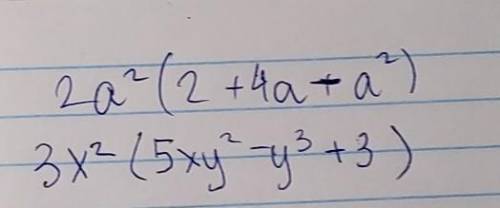 2a²(2+4a-a²)
3x²(5xy²-y³+3)